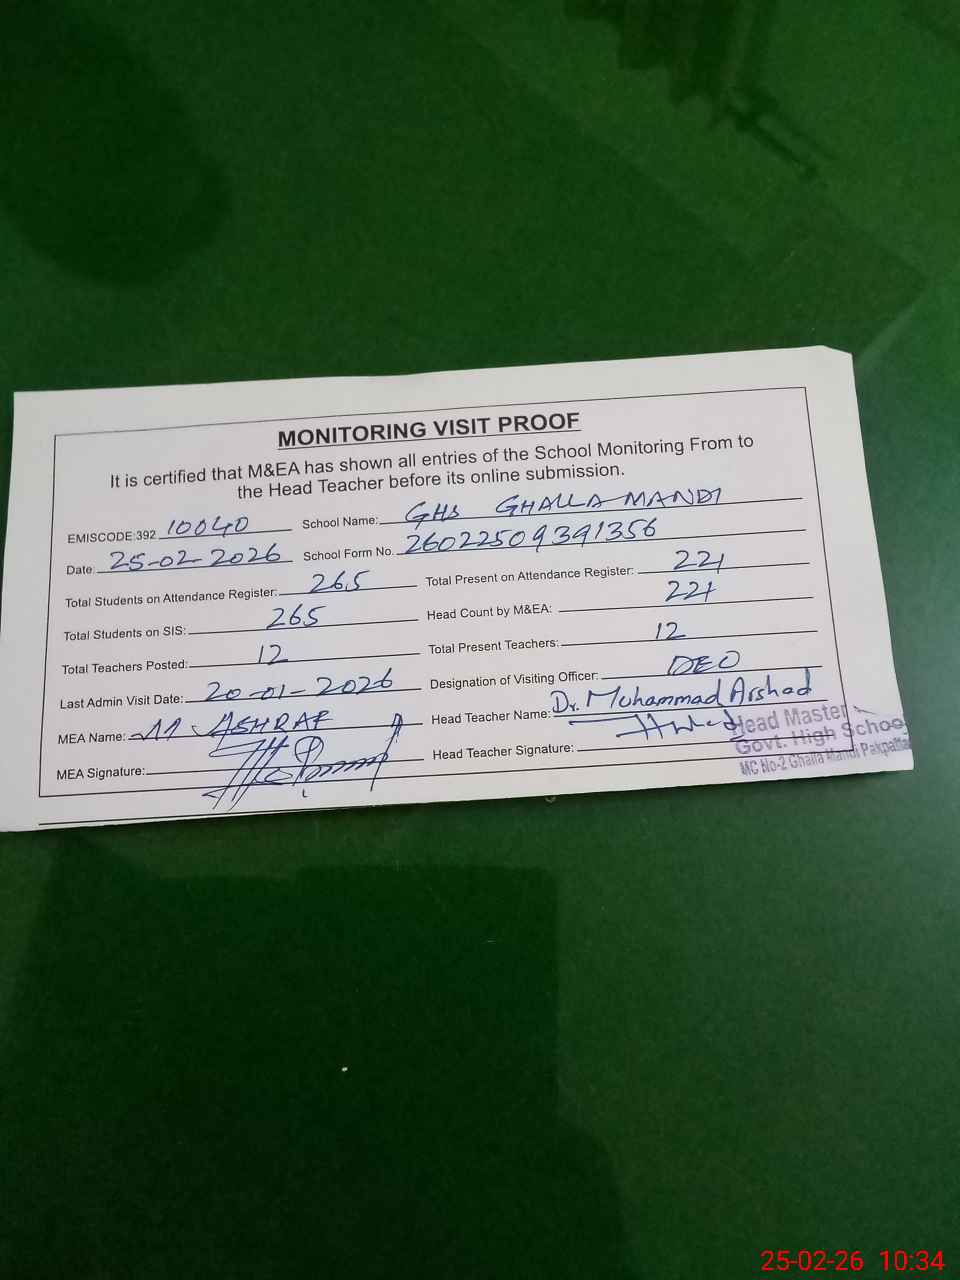 MONITORING VISIT PROOF
It is certified that M&EA has shown all entries of the School Monitoring From to
the Head Teacher before its online submission.
EMISCODE:392 10040 School Name: GHS GHALLA MANDI
Date: 25-02-2026 School Form No. 26022509391356
Total Students on Attendance Register: 265 Total Present on Attendance Register: 221
Total Students on SIS: 265 Head Count by M&EA: 221
Total Teachers Posted: 12 Total Present Teachers: 12
Last Admin Visit Date: 20-01-2026 Designation of Visiting Officer: DEO
MEA Name: M. ASHRAF Head Teacher Name: Dr. Muhammad Arshad
MEA Signature: Head Teacher Signature:
Head Master
Govt. High School
MC No-2 Ghalla Mandi Pakpattan
25-02-26 10:34